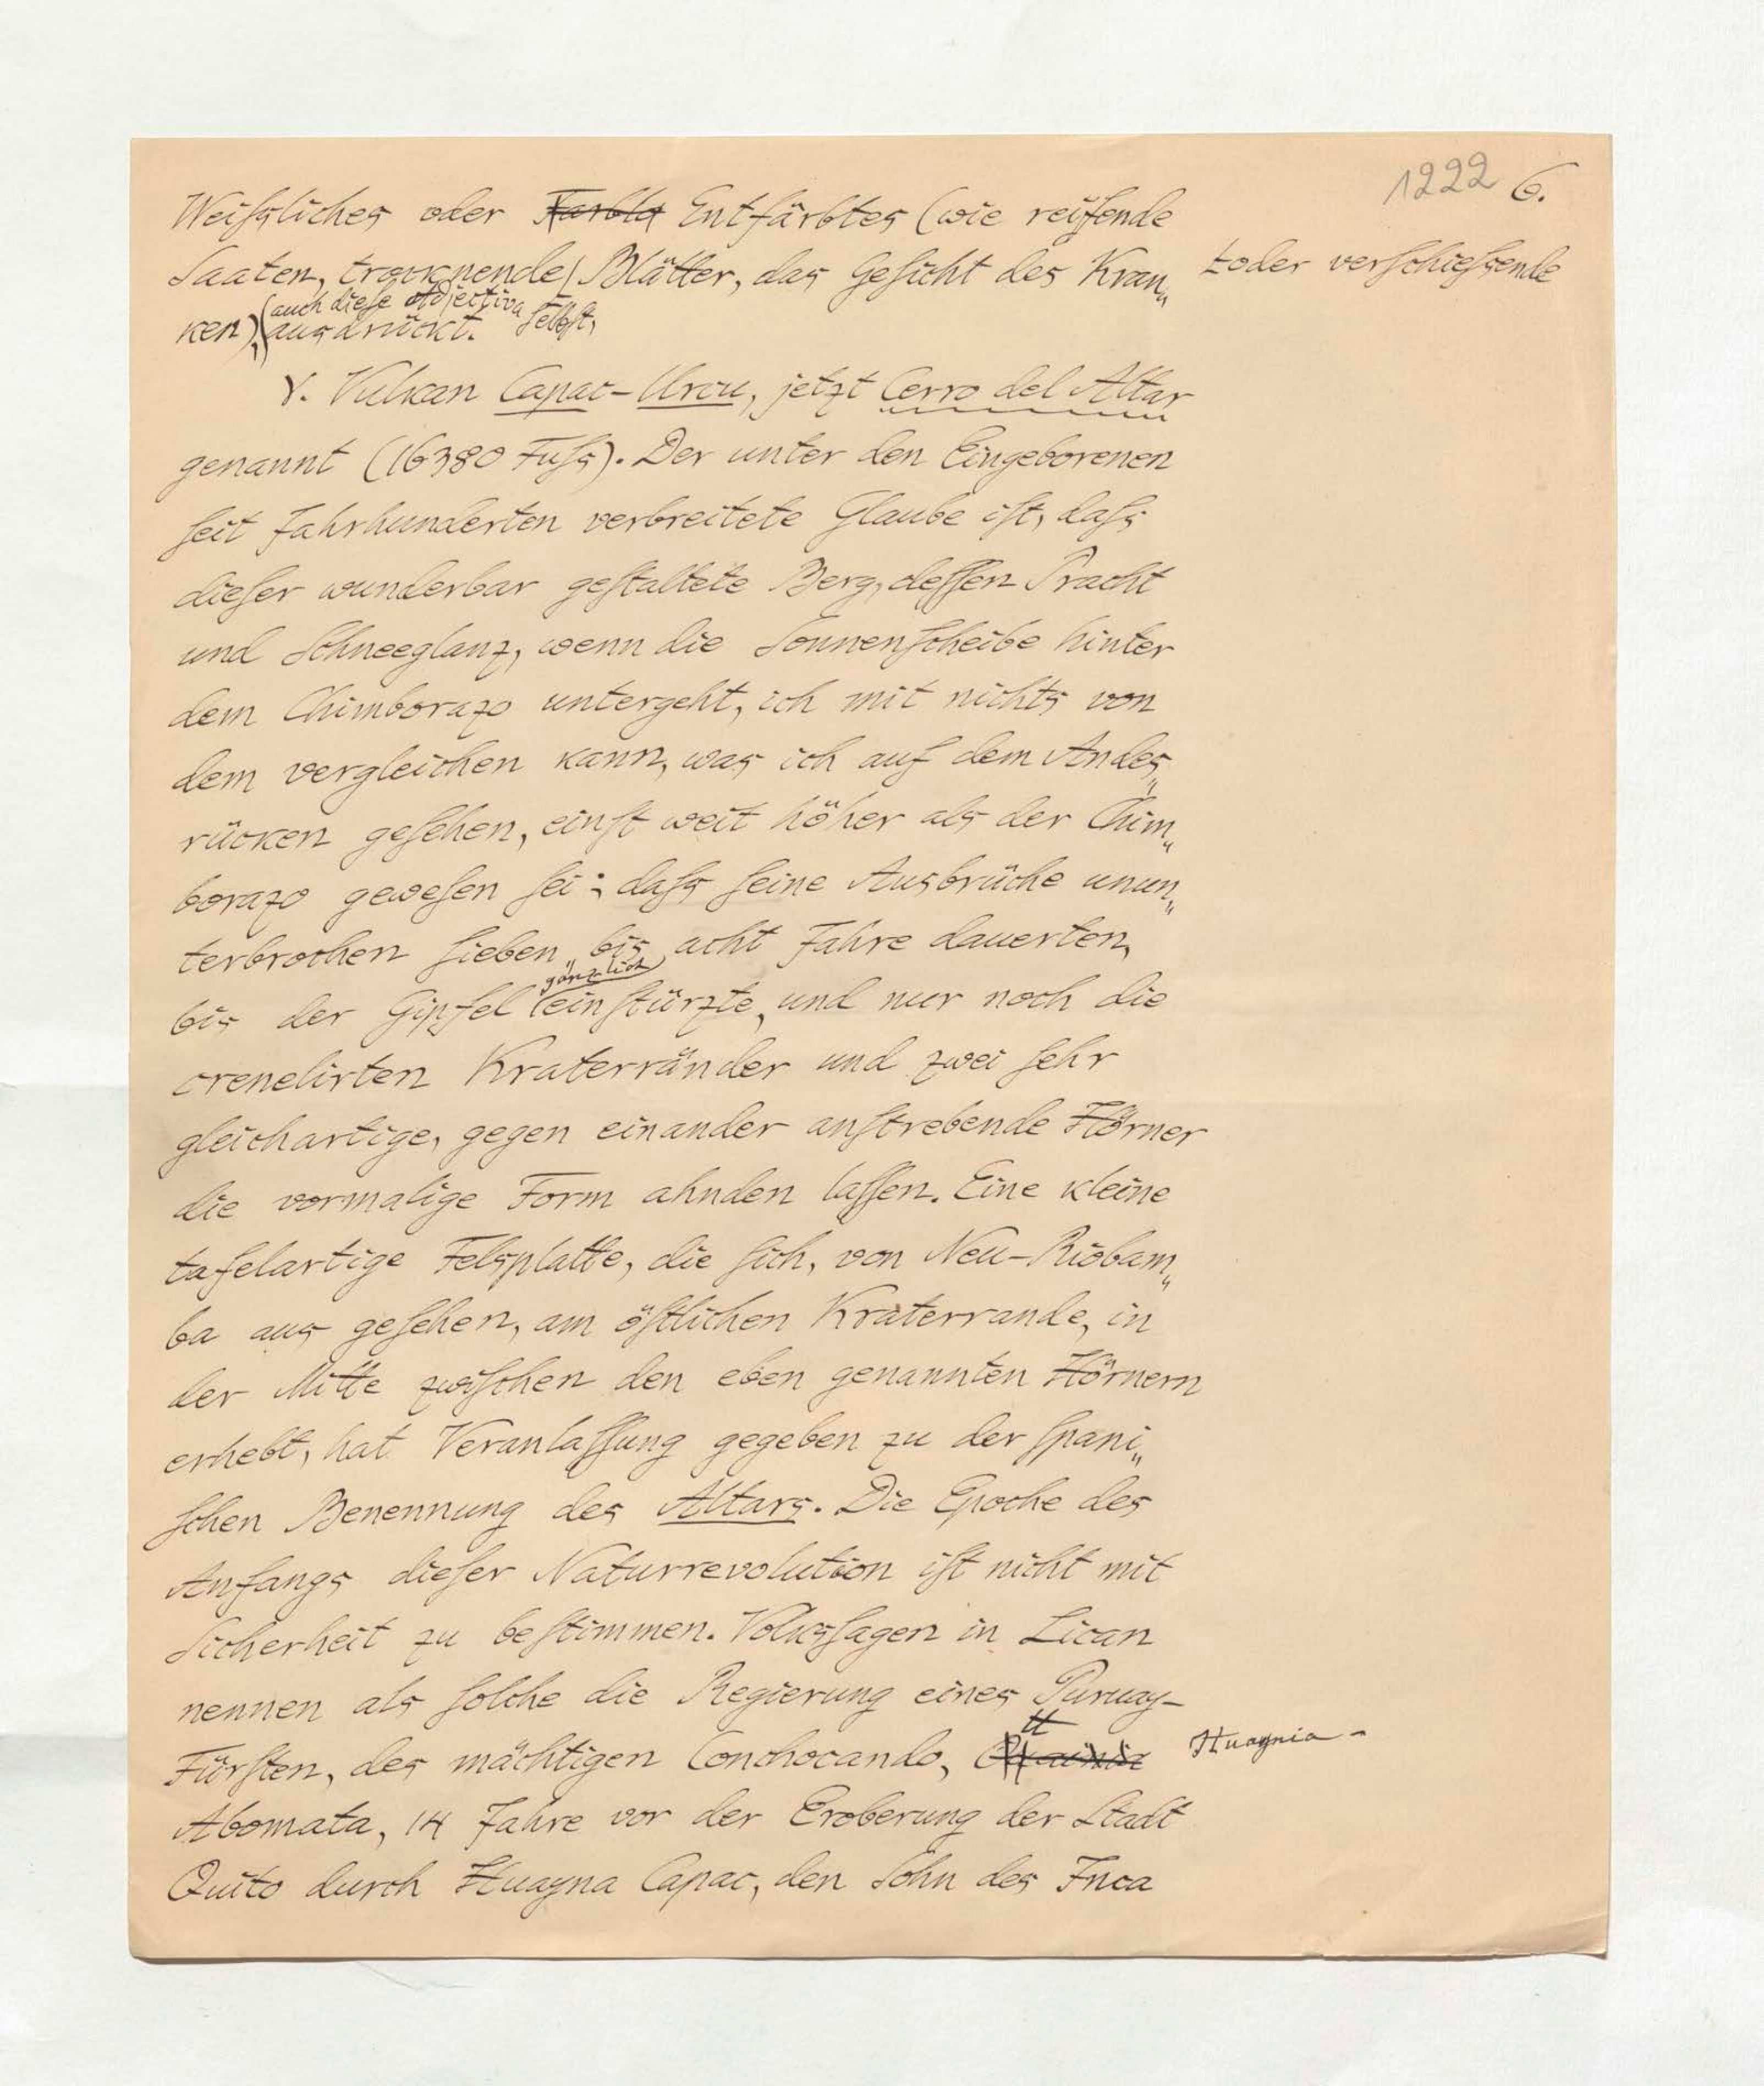 1222 6.
Weißliches oder Farblo Entfärbtes (wie reifende
Saaten, trocknende Blätter, das Gesicht des Kran„
oder verschießende
(auch diese Adjectiva selbst,
ken), ausdrückt.
γ. Vulkan Capac-Urcu, jetzt Cerro del Altar
genannt (16380 Fuß). Der unter den Eingeborenen
seit Jahrhunderten verbreitete Glaube ist, daß
dieser wunderbar gestaltete Berg, dessen Pracht
und Schneeglanz, wenn die Sonnenscheibe hinter
dem Chimborazo untergeht, ich mit nichts von
dem vergleichen kann, was ich auf dem Andes„
rücken gesehen, einst weit höher als der Chim„
borazo gewesen sei; daß seine Ausbrüche unun„
terbrochen sieben bis acht Jahre dauerten,
gänzlich
bis der Gipfel einstürzte, und nur noch die
crenelirten Kraterränder und zwei sehr
gleichartige, gegen einander anstrebende Hörner
die vormalige Form ahnden lassen. Eine kleine
tafelartige Felsplatte, die sich, von Neu-Riobam„
ba aus gesehen, am östlichen Kraterrande, in
der Mitte zwischen den eben genannten Hörnern
erhebt, hat Veranlassung gegeben zu der spani„
schen Benennung des Altars. Die Epoche des
Anfangs dieser Naturrevolution ist nicht mit
Sicherheit zu bestimmen. Volkssagen in Lican
nennen als solche die Regierung eines Puruay-
Fürsten, des mächtigen Conchocando,
Huaynia-
Abomata, 14 Jahre vor der Eroberung der Stadt
Quito durch Huayna Capac, den Sohn des Inca